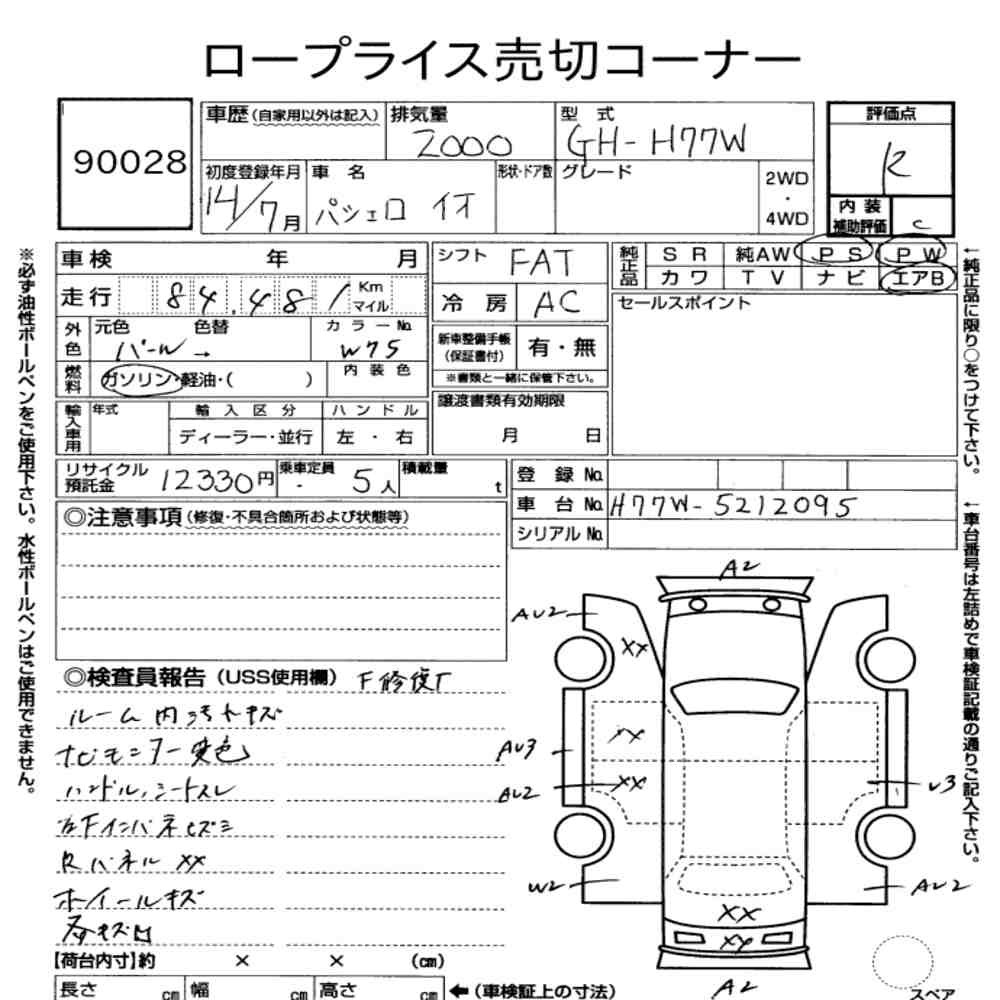 ロープライス売切コーナー
90028
車歴（自家用以外は記入）
排気量
2000
型 式
GH-H77W
評価点
R
初度登録年月
14/7月
車 名
パジェロ イオ
形状・ドア数
グレード
2WD
・
4WD
内 装
補助評価
C
※必ず油性ボールペンをご使用下さい。水性ボールペンはご使用できません。
車検 年 月
走行 84,481 Km マイル
外色
元色
パール→
色替
カラーNo.
W75
燃料
ガソリン・軽油・( )
内装色
輸入車用
年式
輸入区分
ディーラー・並行
ハンドル
左・右
シフト
FAT
冷 房
AC
新車整備手帳
（保証書付）
有・無
※書類と一緒に保管下さい。
譲渡書類有効期限
月 日
純正品
SR 純AW PS PW
カワ TV ナビ エアB
セールスポイント
←純正品に限り○をつけて下さい。
リサイクル
預託金
12330円
乗車定員
5人
積載量
t
登 録 No.
車 台 No. H77W-5212095
シリアル No.
←車台番号は左詰めで車検証記載の通りご記入下さい。
◎注意事項（修復・不具合箇所および状態等）
◎検査員報告（USS使用欄） F修復歴
ルーム内汚れキズ
ナビモニター変色
ハンドル、シートスレ
右Fインパネヒズミ
Rパネル XX
ホイールキズ
各キズ凹
A2
AU2
XX
XX
AU3
XX
AU2
U3
W2
AU2
XX
XX
A2
【荷台内寸】約 × × (cm)
長さ cm 幅 cm 高さ cm ←（車検証上の寸法）
スペア